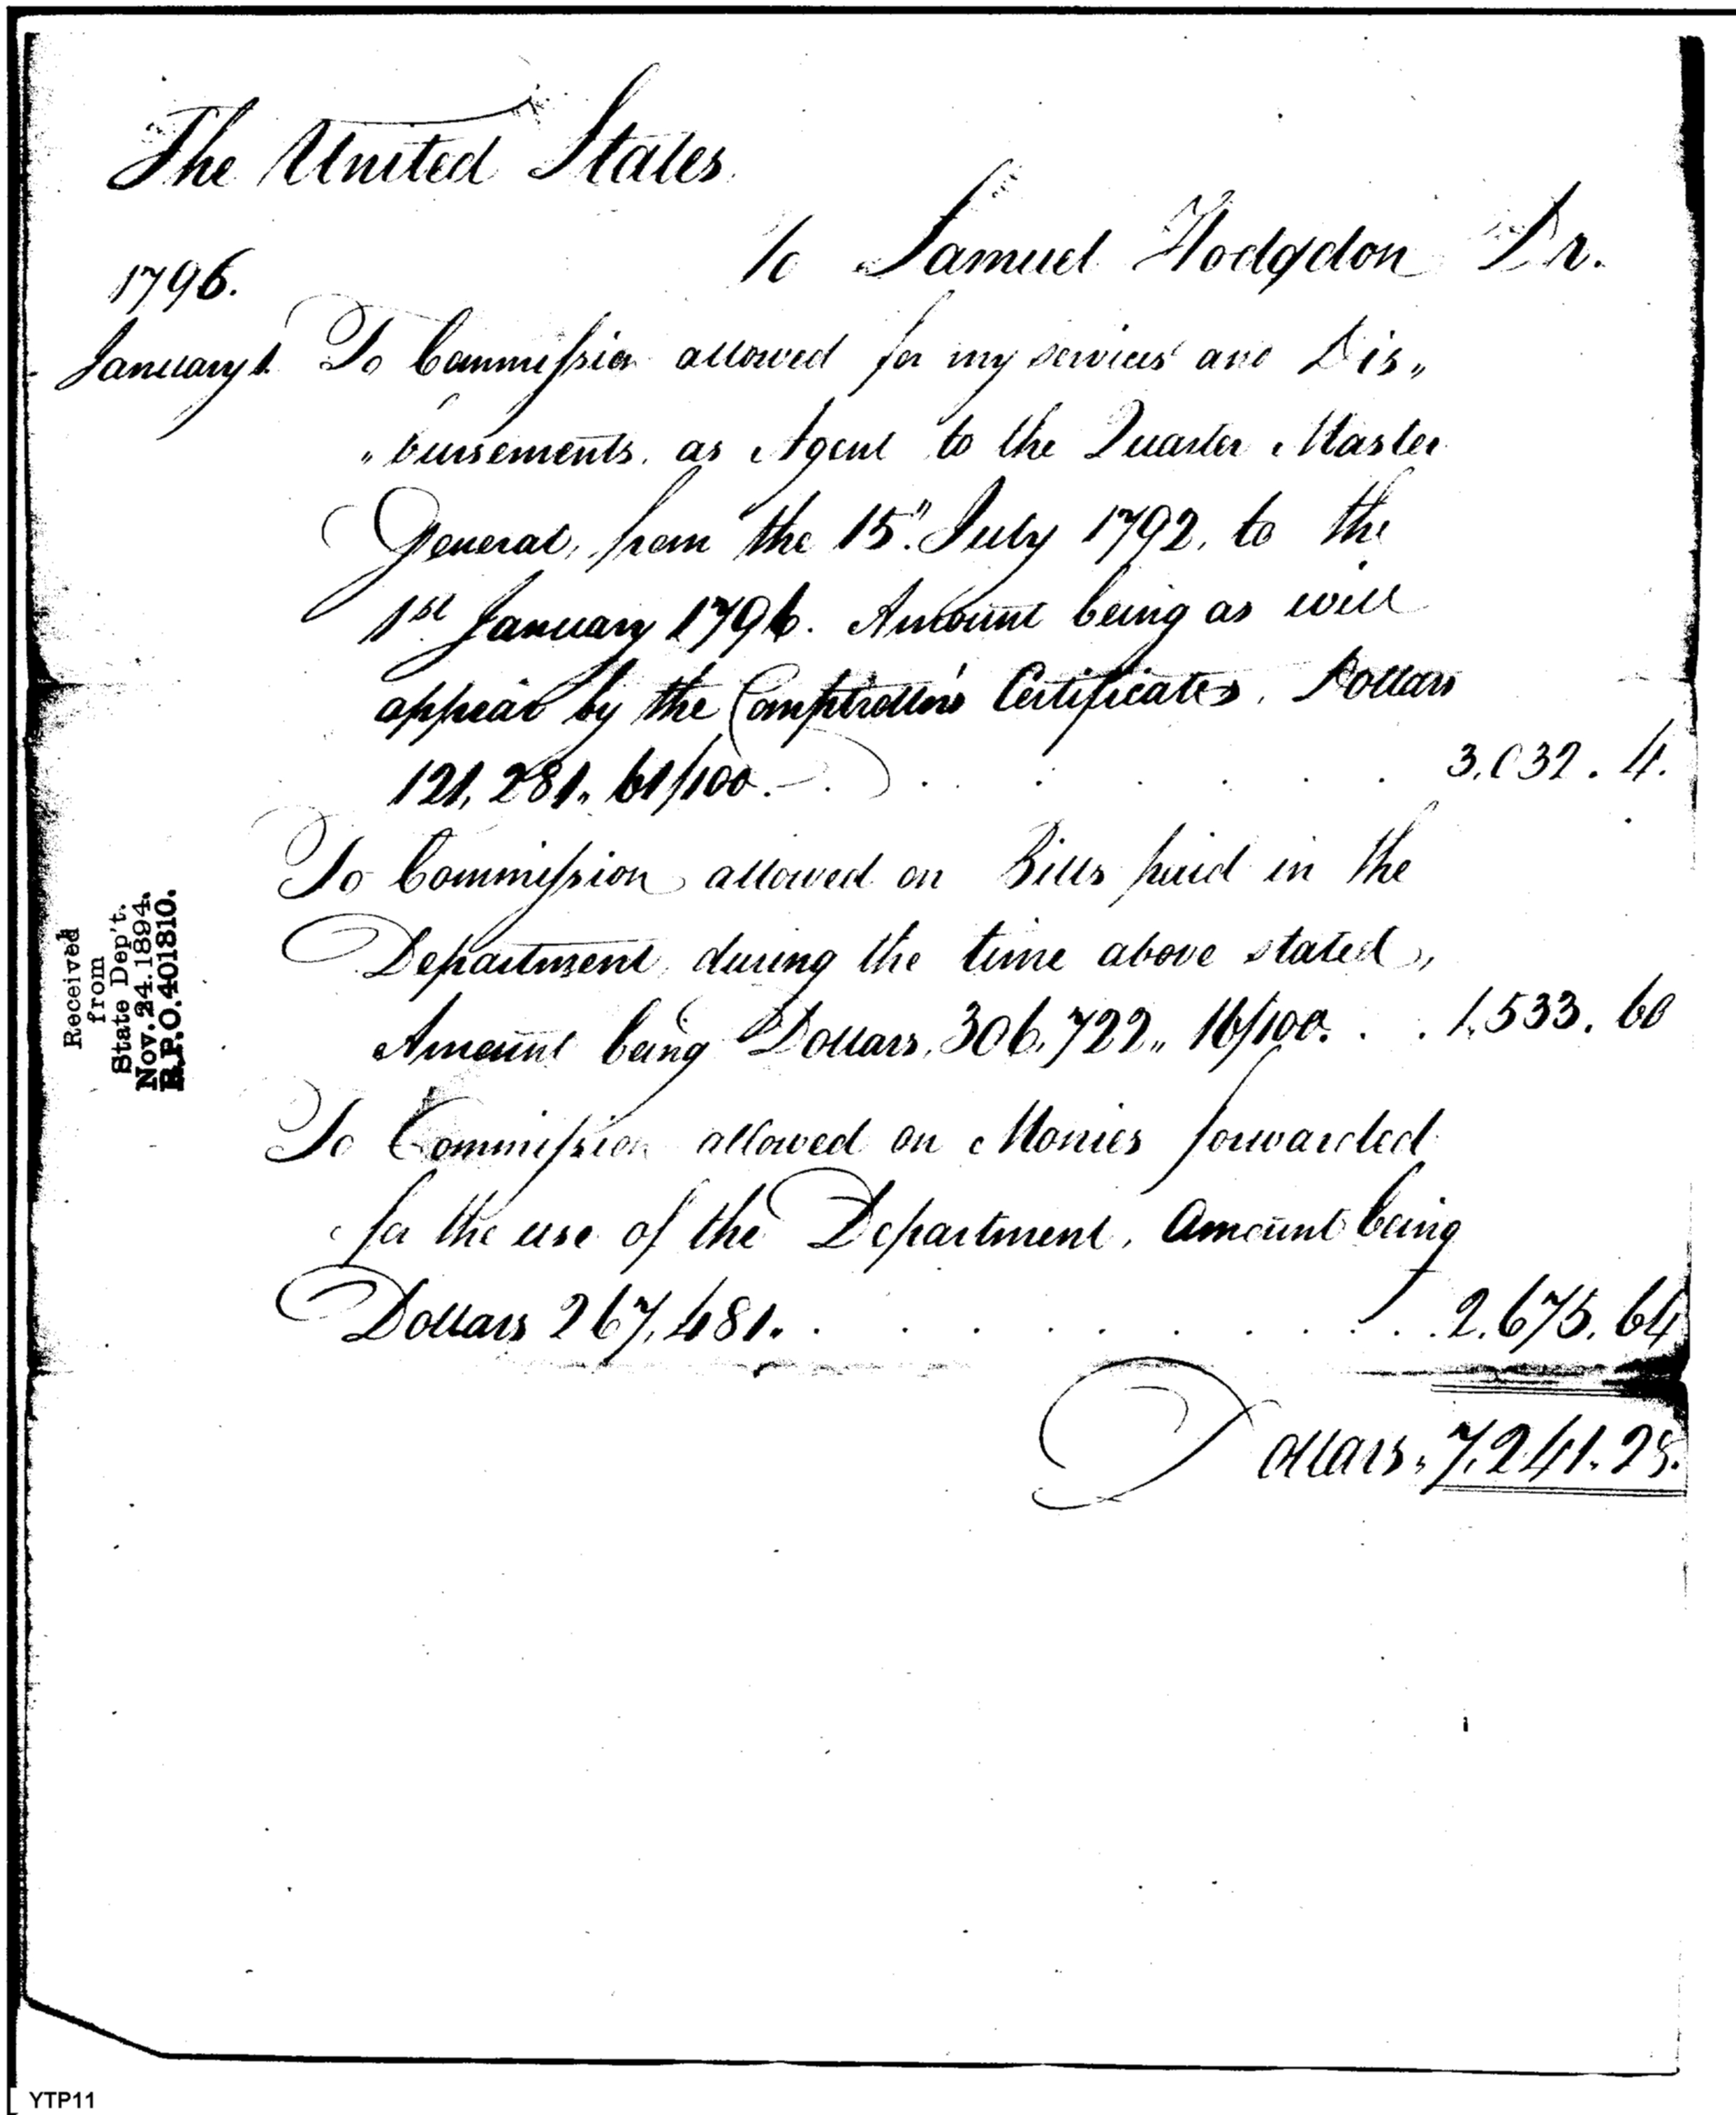 The United States
To Samuel Hodgdon Dr.
1796.
January 1. To Commission allowed for my services and Dis„
„bursements, as Agent to the Quarter Master
General, from the 15" July 1792, to the
1st January 1796. Amount being as will
appear by the Comptrollers Certificates, Dollars
121,281. 61/100. . . . . . . . 3.032. 4.
To Commission allowed on Bills paid in the
Department, during the time above stated,
Amount being Dollars, 306,722„ 16/100. . . 1,533. 60
To Commission allowed on Monies forwarded
for the use of the Department, Amount being
Dollars 267,481. . . . . . . . . . 2.675. 64
Dollars, 7,241. 28.
Received
from
State Dep't.
Nov. 24. 1894.
R.P.O. 401810.
YTP11